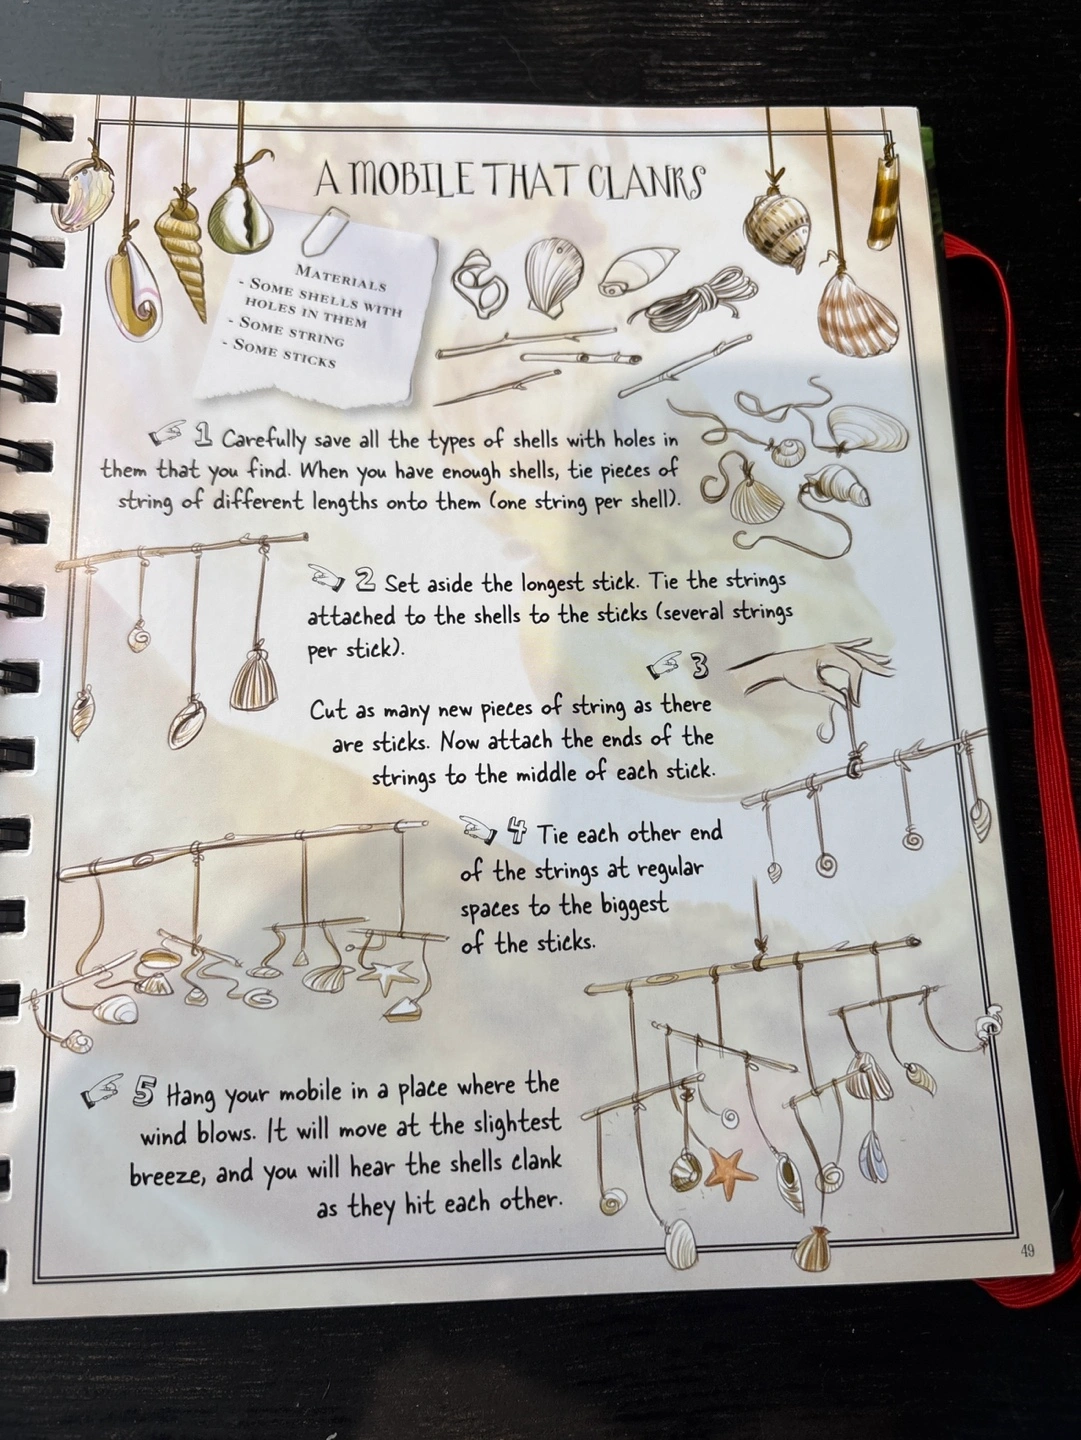 A MOBILE THAT CLANKS
MATERIALS
- SOME SHELLS WITH
HOLES IN THEM
- SOME STRING
- SOME STICKS
1 Carefully save all the types of shells with holes in
them that you find. When you have enough shells, tie pieces of
string of different lengths onto them (one string per shell).
2 Set aside the longest stick. Tie the strings
attached to the shells to the sticks (several strings
per stick).
3
Cut as many new pieces of string as there
are sticks. Now attach the ends of the
strings to the middle of each stick.
4 Tie each other end
of the strings at regular
spaces to the biggest
of the sticks.
5 Hang your mobile in a place where the
wind blows. It will move at the slightest
breeze, and you will hear the shells clank
as they hit each other.
49